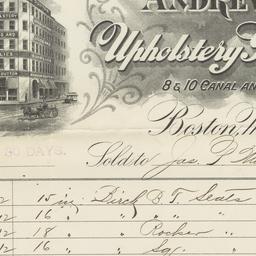 ANDREW
Upholstery
8 & 10 CANAL AN
Boston,
30 DAYS.
Sold to Jas. P
2 15 in Birch B. T. Seats
12 16 " " " "
12 18 " " Rocker "
12 16 " " Sq. "